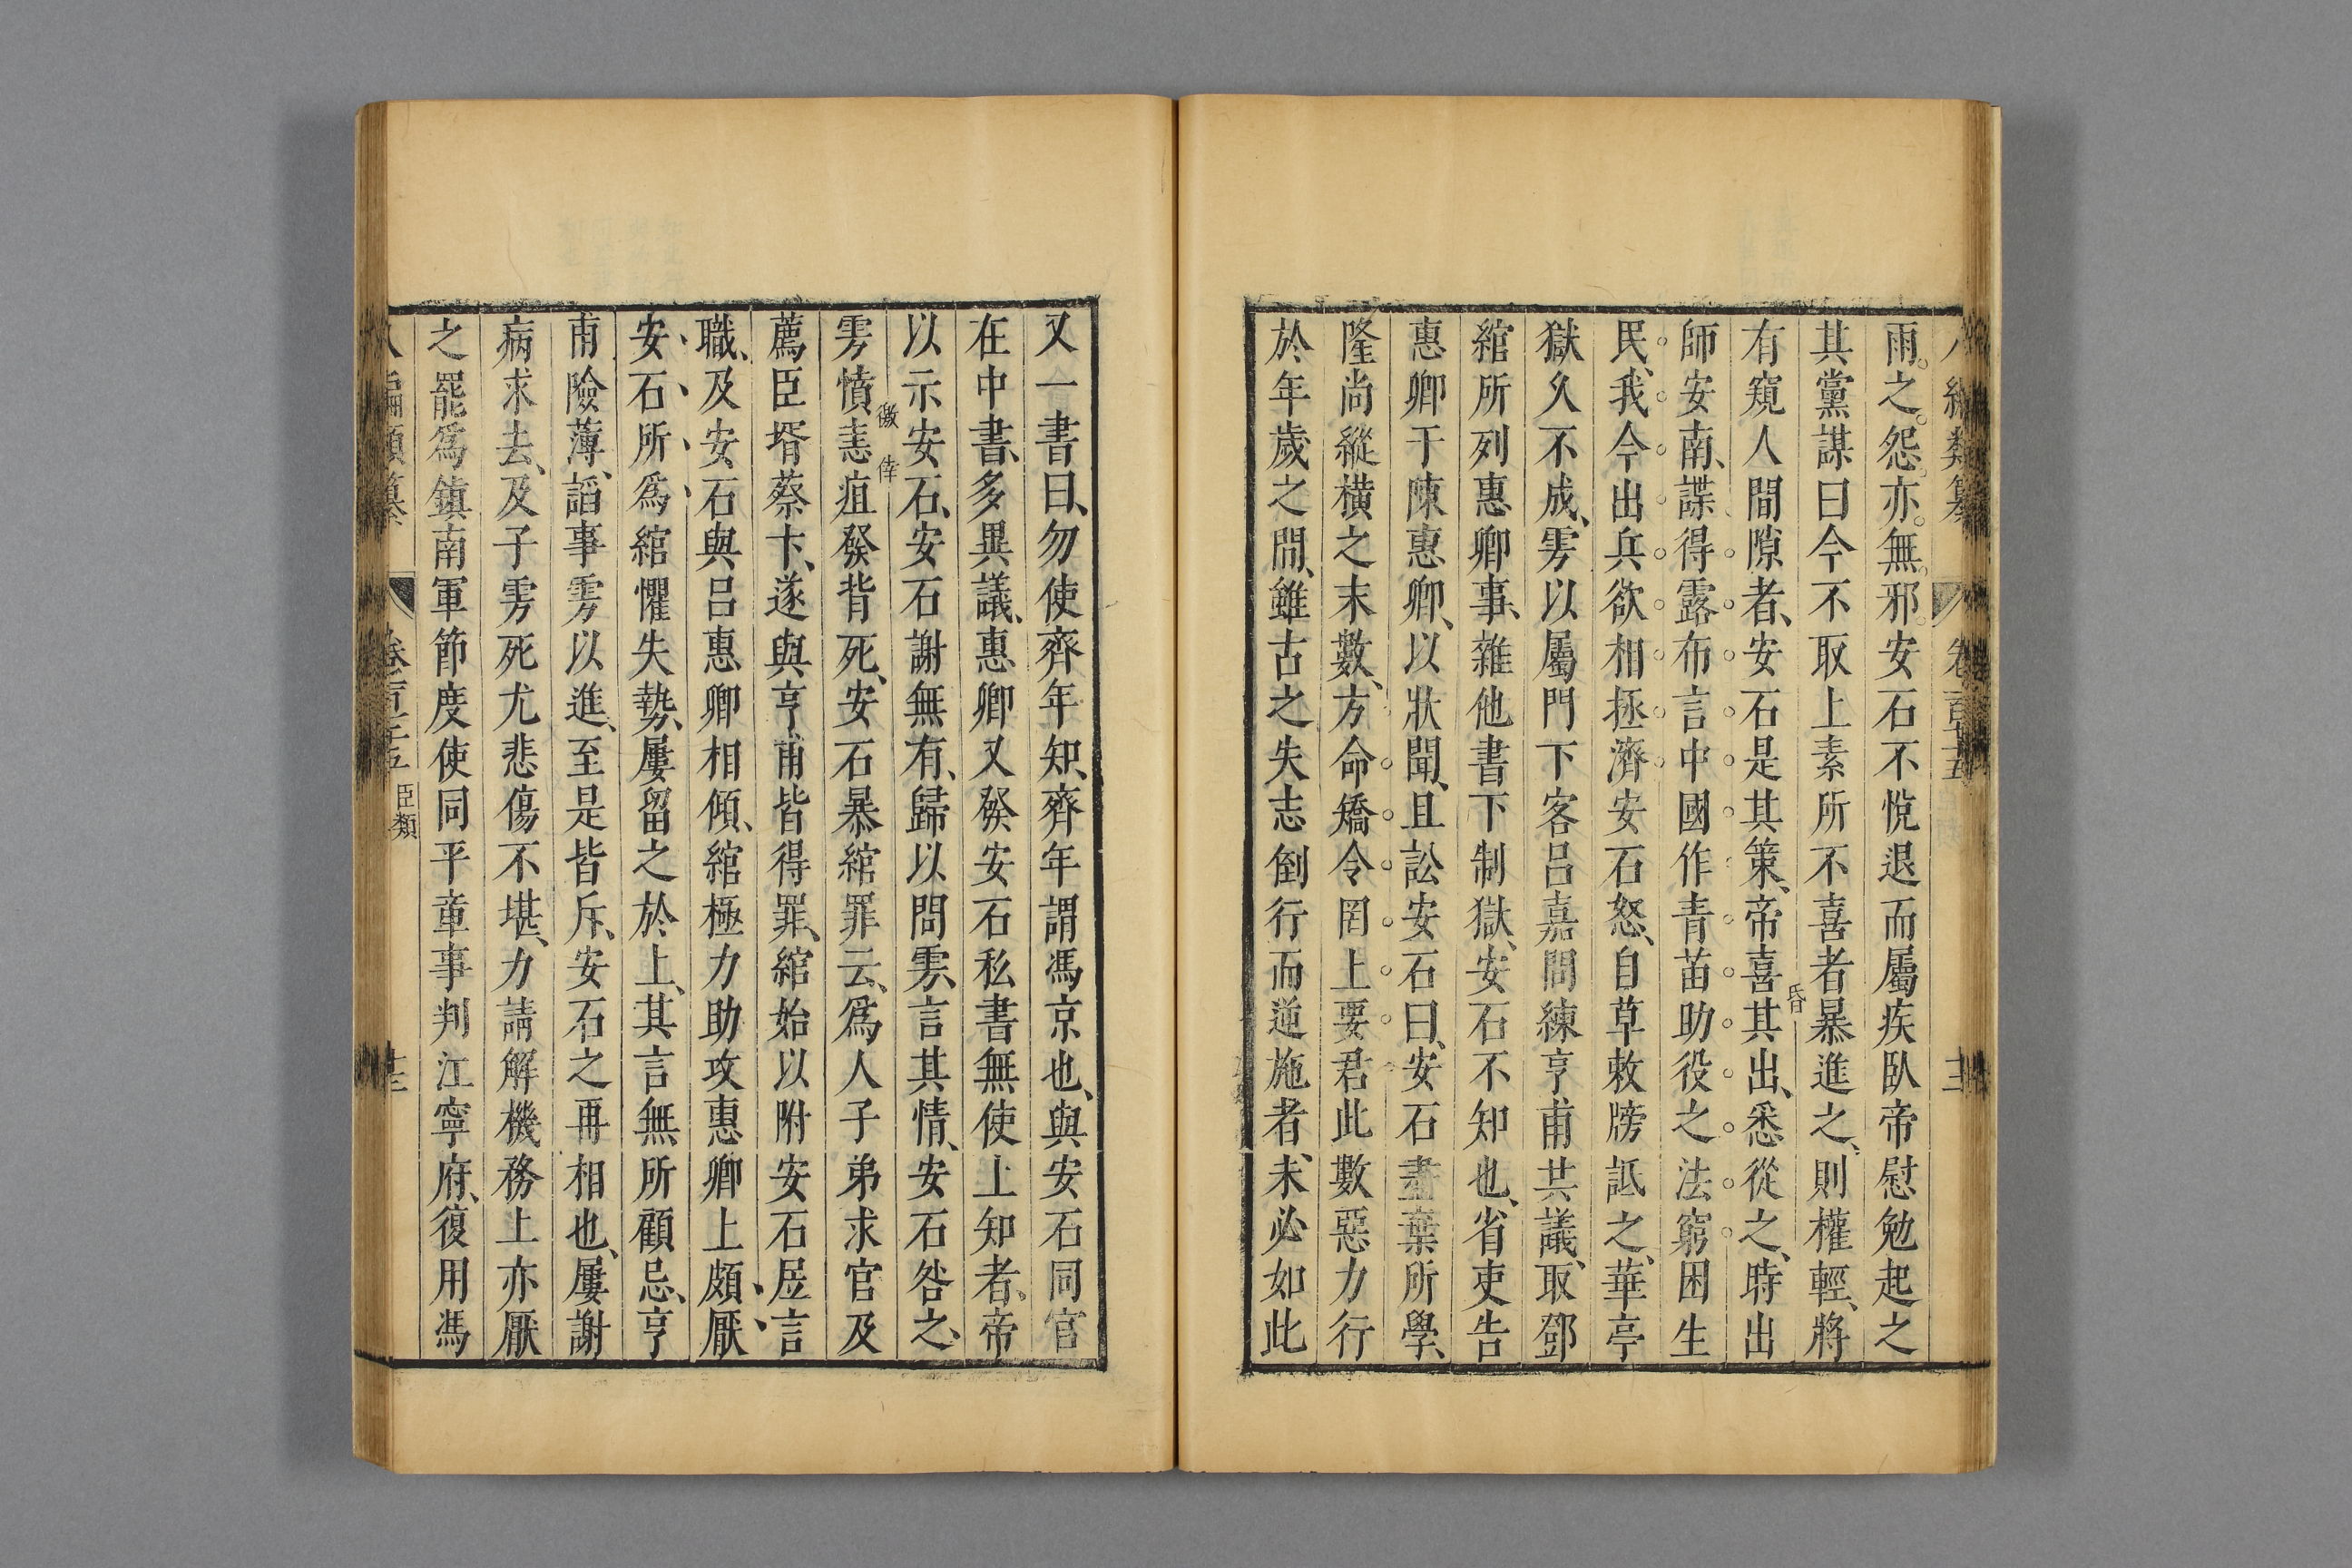 雨之怨亦無邪安石不悅退而屬疾臥帝慰勉起之
其黨謀曰今不取上素所不喜者暴進之則權輕將
昏
有窺人間隙者安石是其策帝喜其出悉從之時出
師安南諜得露布言中國作青苗助役之法窮困生
民我今出兵欲相拯濟安石怒自草敕牓詆之華亭
獄久不成雱以屬門下客呂嘉問練亨甫共議取鄧
綰所列惠卿事雜他書下制獄安石不知也省吏告
惠卿于陳惠卿以狀聞且訟安石曰安石盡棄所學
隆尚縱橫之末數方命矯令罔上要君此數惡力行
於年歲之間雖古之失志倒行而逆施者未必如此
又一書曰勿使齊年知齊年謂馮京也與安石同官
在中書多異議惠卿又發安石私書無使上知者帝
以示安石安石謝無有歸以問雱言其情安石咎之
雱憤恚疽發背死安石暴綰罪云為人子弟求官及
薦臣壻蔡卞遂與亨甫皆得罪綰始以附安石居言
職及安石與呂惠卿相傾綰極力助攻惠卿上頗厭
安石所為綰懼失勢屢留之於上其言無所顧忌亨
甫險薄諂事雱以進至是皆斥安石之再相也屢謝
病求去及子雱死尤悲傷不堪力請解機務上亦厭
之罷為鎮南軍節度使同平章事判江寧府復用馮
臣類